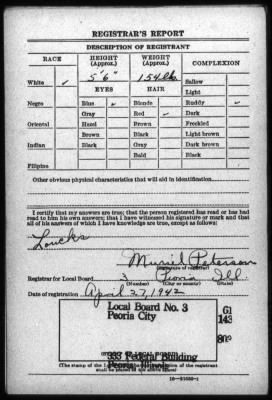 REGISTRAR'S REPORT
DESCRIPTION OF REGISTRANT
RACE HEIGHT (Approx.) WEIGHT (Approx.) COMPLEXION
5' 6" 154 lb.
White ✓ Sallow
EYES HAIR Light
Negro Blue ✓ Blonde Ruddy ✓
Gray Red ✓ Dark
Oriental Hazel Brown Freckled
Brown Black Light brown
Indian Black Gray Dark brown
Bald Black
Filipino
Other obvious physical characteristics that will aid in identification
I certify that my answers are true; that the person registered has read or has had
read to him his own answers; that I have witnessed his signature or mark and that
all of his answers of which I have knowledge are true, except as follows:
Loucks
Muriel Peterson
(Signature of registrar)
Registrar for Local Board 3 Peoria Ill.
(Number) (City or county) (State)
Date of registration April 27, 1942
Local Board No. 3
Peoria City
333 Federal Building
Peoria, Illinois
(The stamp of the Local Board of the registrant
shall be placed in the above space)